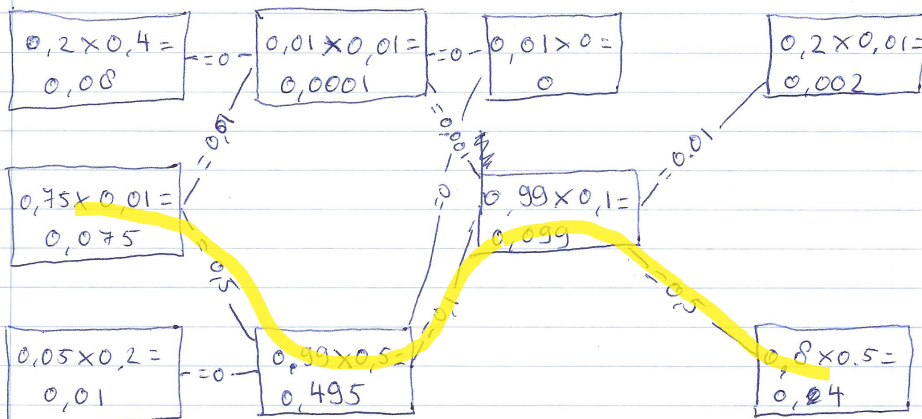 0,2×0,4=
0,08
=0
0,01×0,01=
0,0001
=0
0,01×0=
0
0,2×0,01=
0,002
=0,01
=0
=0.01
0,75×0,01=
0,075
0,99×0,1=
0,099
=0,5
=0,1
=0,5
0,05×0,2=
0,01
=0
0,99×0,5=
0,495
0,8×0.5=
0,04